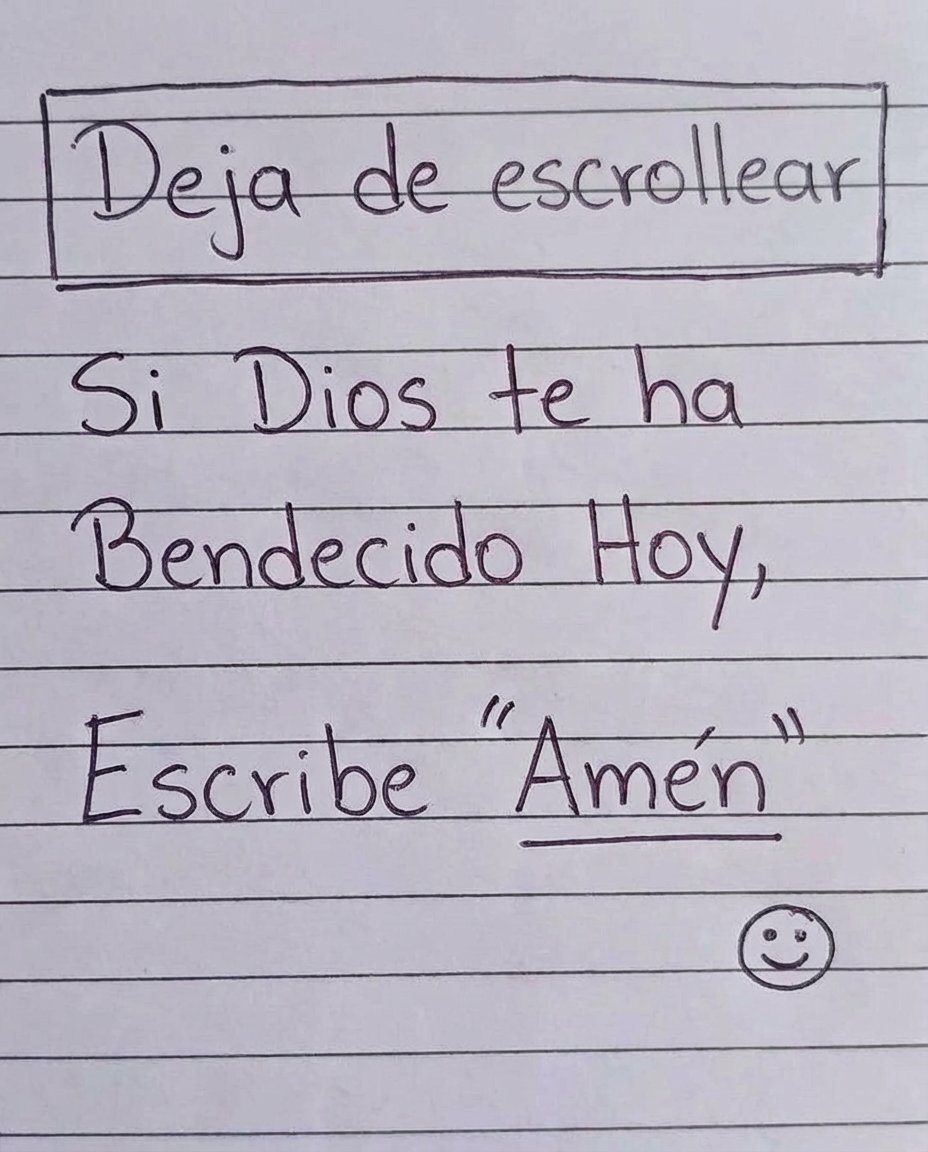 Deja de escrollear
Si Dios te ha
Bendecido Hoy,
Escribe "Amén"